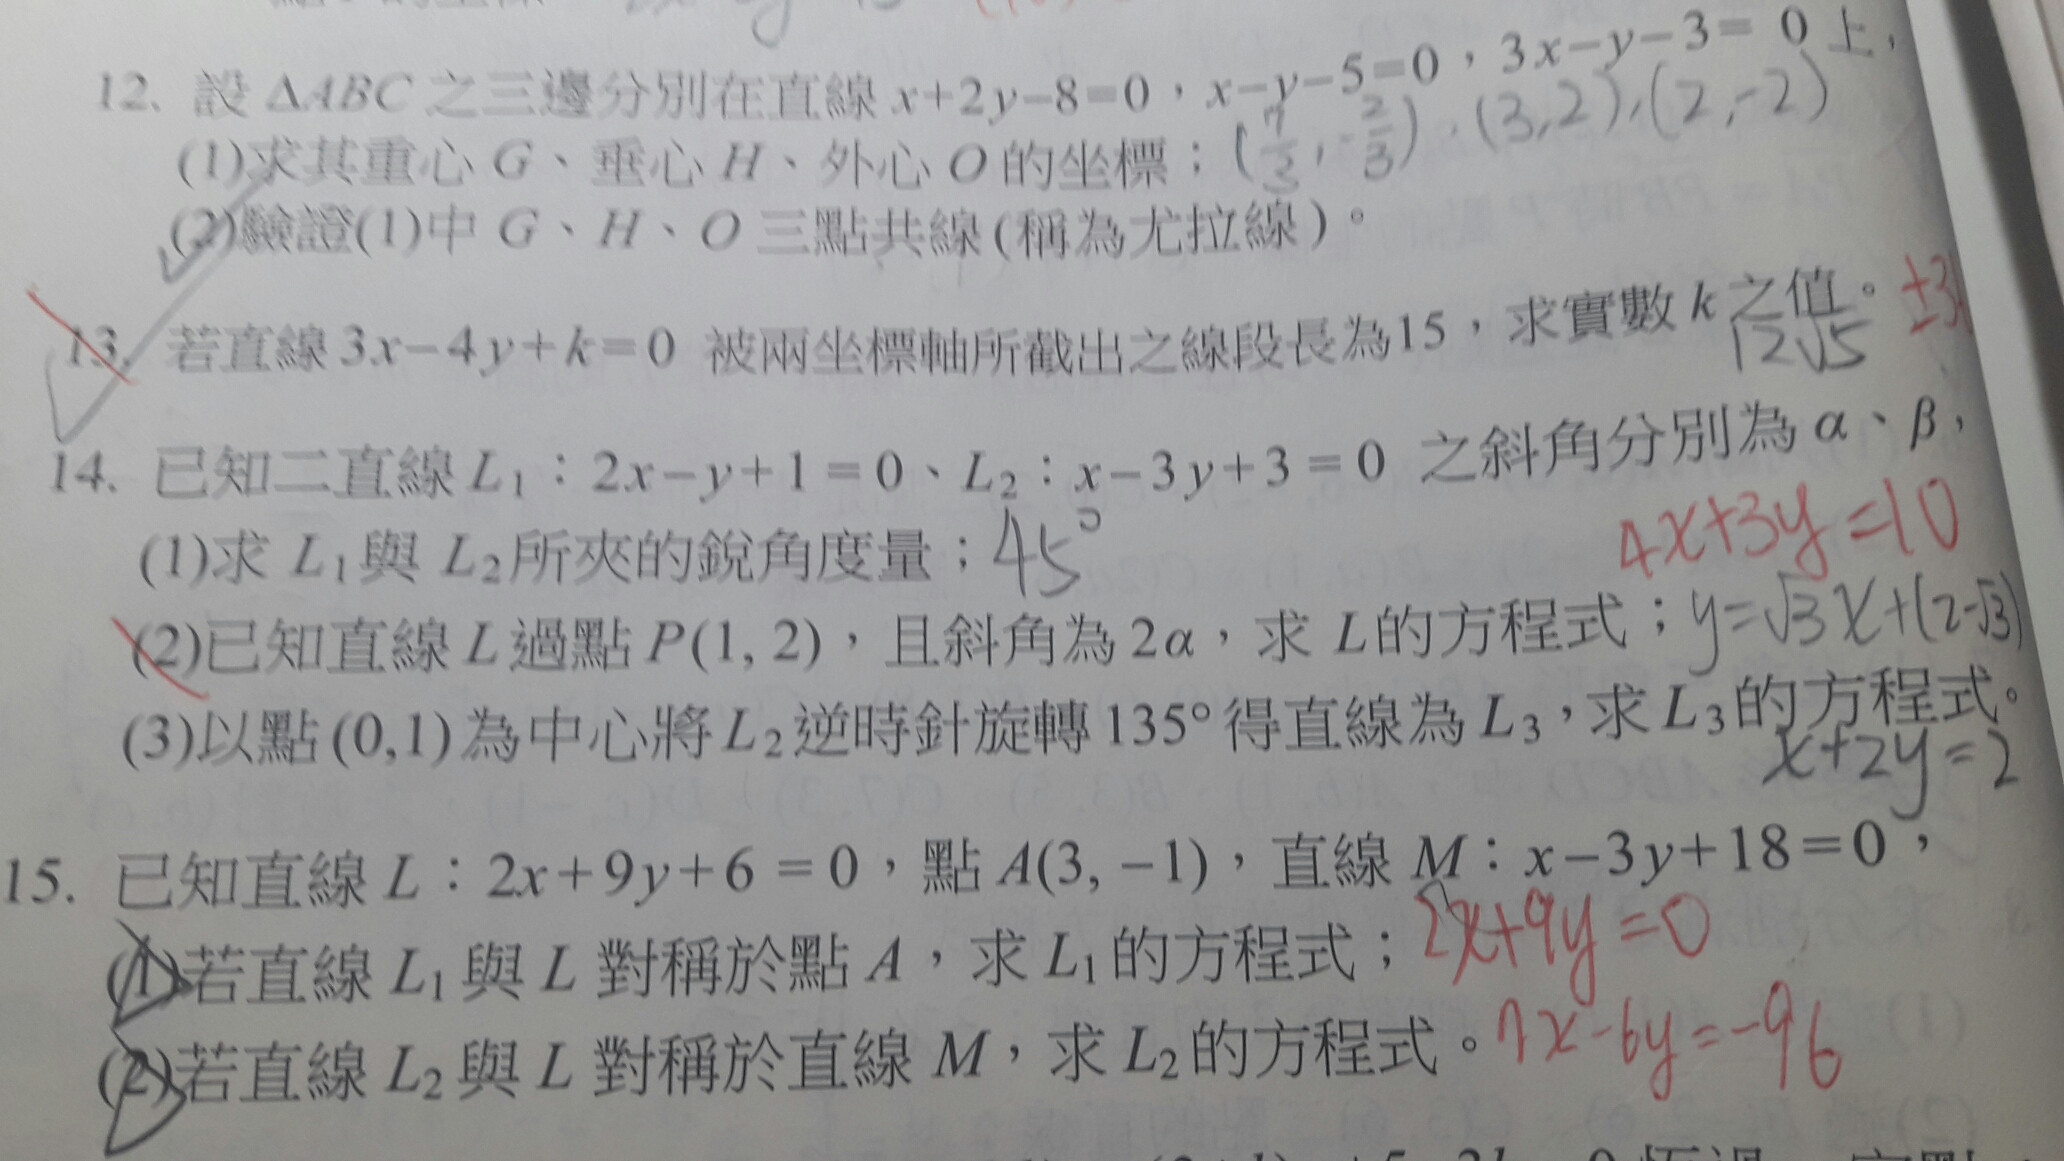 12. 設 ΔABC 之三邊分別在直線 x+2y-8=0,x-y-5=0,3x-y-3=0 上,
(1)求其重心 G、垂心 H、外心 O 的坐標; (7/3, -2/3), (3,2), (2,-2)
(2)驗證(1)中 G、H、O 三點共線(稱為尤拉線)。
13. 若直線 3x-4y+k=0 被兩坐標軸所截出之線段長為15,求實數 k 之值。
12√5
14. 已知二直線 L₁:2x-y+1=0、L₂:x-3y+3=0 之斜角分別為 α、β,
(1)求 L₁與 L₂所夾的銳角度量; 45°
4x+3y=10
(2)已知直線 L 過點 P(1, 2),且斜角為 2α,求 L的方程式; y=√3x+(2-√3)
(3)以點(0,1)為中心將L₂逆時針旋轉135°得直線為L₃,求L₃的方程式。
x+2y=2
15. 已知直線 L:2x+9y+6=0,點 A(3, -1),直線 M:x-3y+18=0,
(1)若直線 L₁與 L 對稱於點 A,求 L₁的方程式; 2x+9y=0
(2)若直線 L₂與 L 對稱於直線 M,求 L₂的方程式。 7x-6y=-96